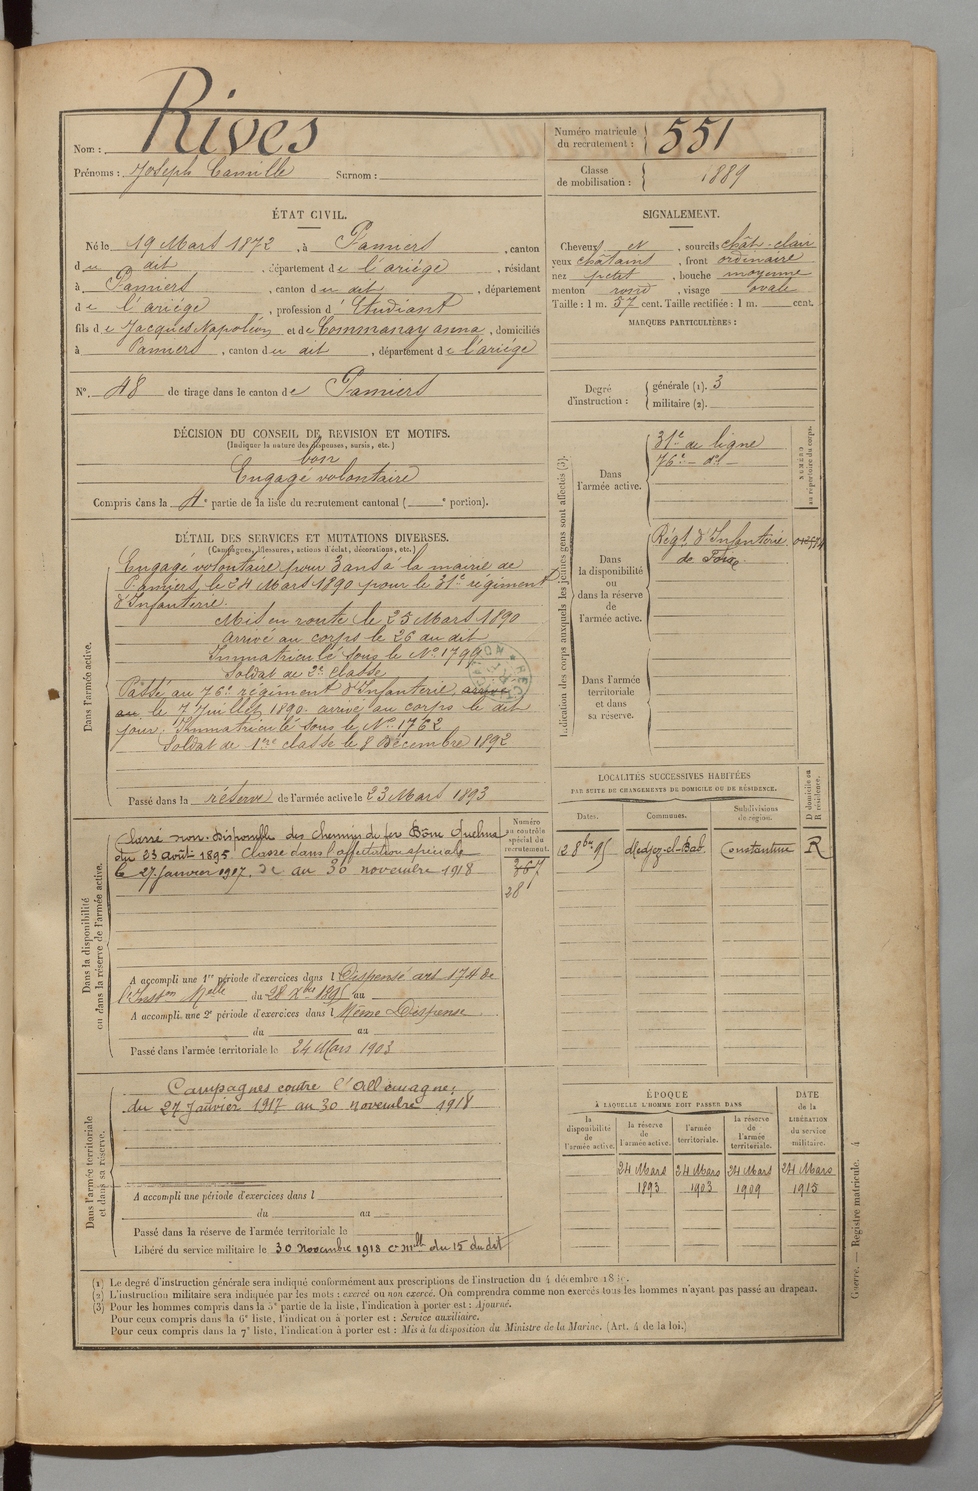 Nom : Rives
Prénoms : Joseph Camille Surnom :
Numéro matricule du recrutement : 551
Classe de mobilisation : 1889
ÉTAT CIVIL.
Né le 19 Mars 1872, à Pamiers, canton
du dit, département de l'ariége, résidant
à Pamiers, canton du dit, département
de l'ariége, profession d'Etudiant
fils de Jacques Napoléon et de Commanay anna, domiciliés
à Pamiers, canton du dit, département de l'ariége
N° 48 de tirage dans le canton de Pamiers
DÉCISION DU CONSEIL DE REVISION ET MOTIFS.
(Indiquer la nature des dispenses, sursis, etc.)
bon
Engagé volontaire
Compris dans la 4e partie de la liste du recrutement cantonal ( e portion).
SIGNALEMENT.
Cheveux et, sourcils chât-clair
yeux châtains, front ordinaire
nez petit, bouche moyenne
menton rond, visage ovale
Taille : 1 m. 57 cent. Taille rectifiée : 1 m. cent.
MARQUES PARTICULIÈRES :
Degré d'instruction : générale (1). 3
militaire (2).
DÉTAIL DES SERVICES ET MUTATIONS DIVERSES.
(Campagnes, blessures, actions d'éclat, décorations, etc.)
Dans l'armée active.
Engagé volontaire pour 3 ans à la mairie de
Pamiers le 24 Mars 1890 pour le 31e régiment
d'Infanterie.
Mis en route le 25 Mars 1890
arrivé au corps le 26 au dit
Immatriculé sous le No 1799
Soldat de 2e classe
Passé au 76e régiment d'Infanterie arrivé
au le 7 Juillet 1890. arrivé au corps le dit
jour. Immatriculé sous le No 1762
Soldat de 1ere classe le 8 Décembre 1892
Passé dans la réserve de l'armée active le 23 Mars 1893
Indication des corps auxquels les jeunes gens sont affectés (3).
Dans l'armée active.
31e de ligne
76e - do -
NUMÉRO au répertoire du corps.
Dans la disponibilité ou dans la réserve de l'armée active.
Régt d'Infanterie
de Foix
Dans l'armée territoriale et dans sa réserve.
Dans la disponibilité ou dans la réserve de l'armée active.
Classé non-disponible des Chemins de fer Bône Guelma
du 23 août 1895 Classé dans l'affectation spéciale
le 27 janvier 1917. de au 30 novembre 1918
Numéro au contrôle spécial du recrutement.
367
28
A accompli une 1re période d'exercices dans l Dispensé art 174 de
l'Inston Melle du 28 Xbre 1895 au
A accompli une 2e période d'exercices dans l Même Dispense
du au
Passé dans l'armée territoriale le 24 Mars 1903
LOCALITÉS SUCCESSIVES HABITÉES
PAR SUITE DE CHANGEMENTS DE DOMICILE OU DE RÉSIDENCE.
Dates. Communes. Subdivisions de région. D domicile ou R résidence.
12 8bre 95 Medjez-el-Bab Constantine R
Dans l'armée territoriale et dans sa réserve.
Campagnes contre l'Allemagne :
du 27 Janvier 1917 au 30 novembre 1918
A accompli une période d'exercices dans l
du au
Passé dans la réserve de l'armée territoriale le
Libéré du service militaire le 30 novembre 1918 du 15 du dit
ÉPOQUE
À LAQUELLE L'HOMME DOIT PASSER DANS
la disponibilité de l'armée active. la réserve de l'armée active. l'armée territoriale. la réserve de l'armée territoriale. DATE de la LIBÉRATION du service militaire.
24 Mars 24 Mars 24 Mars 24 Mars
1893 1903 1909 1915
(1) Le degré d'instruction générale sera indiqué conformément aux prescriptions de l'instruction du 4 décembre
(2) L'instruction militaire sera indiquée par les mots : exercé ou non exercé. On comprendra comme non exercés tous les hommes n'ayant pas passé au drapeau.
(3) Pour les hommes compris dans la 5e partie de la liste, l'indication à porter est : Ajourné.
Pour ceux compris dans la 6e liste, l'indication à porter est : Service auxiliaire.
Pour ceux compris dans la 7e liste, l'indication à porter est : Mis à la disposition du Ministre de la Marine. (Art. 4 de la loi.)
Guerre. — Registre matricule. 4